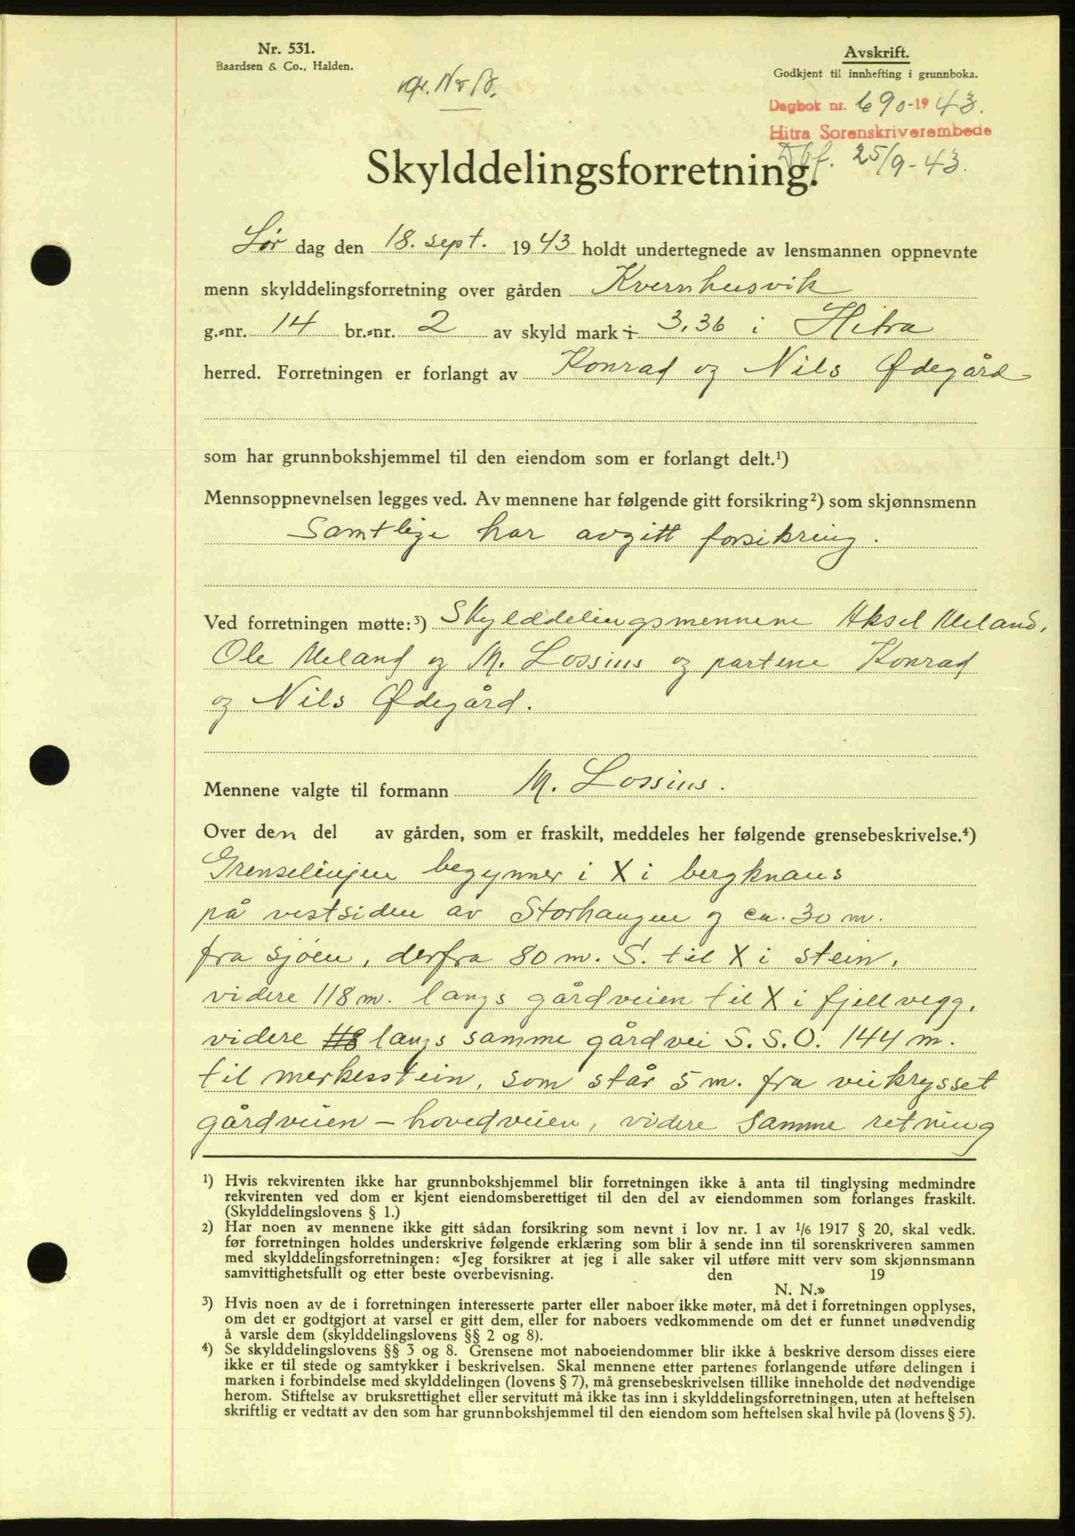 Nr. 531.
Baardsen & Co., Halden.
Avskrift.
Godkjent til innhefting i grunnboka.
Dagbok nr. 690-1943.
Hitra Sorenskriverembede
Dbf. 25/9-43.
Skylddelingsforretning.
Lør dag den 18. sept. 1943 holdt undertegnede av lensmannen oppnevnte
menn skylddelingsforretning over gården Kvernhusvik
g.-nr. 14 br.-nr. 2 av skyld mark 3,36 i Hitra
herred. Forretningen er forlangt av Konrad og Nils Ødegård
som har grunnbokshjemmel til den eiendom som er forlangt delt.¹)
Mennsoppnevnelsen legges ved. Av mennene har følgende gitt forsikring²) som skjønnsmenn
Samtlige har avgitt forsikring.
Ved forretningen møtte:³) Skylddelingsmennene Aksel Meland,
Ole Meland og M. Lossius og partene Konrad
og Nils Ødegård.
Mennene valgte til formann M. Lossius.
Over den del av gården, som er fraskilt, meddeles her følgende grensebeskrivelse.⁴)
Grenselinjen begynner i X i bergknaus
på vestsiden av Storhaugen og ca. 30 m.
fra sjøen, derfra 80 m. S. til X i stein,
videre 118 m. langs gårdveien til X i fjellvegg,
videre 118 langs samme gårdvei S.S.O. 144 m.
til merkesstein, som står 5 m. fra veikrysset
gårdveien - hovedveien, videre samme retning
¹) Hvis rekvirenten ikke har grunnbokshjemmel blir forretningen ikke å anta til tinglysing medmindre
rekvirenten ved dom er kjent eiendomsberettiget til den del av eiendommen som forlanges fraskilt.
(Skylddelingslovens § 1.)
²) Har noen av mennene ikke gitt sådan forsikring som nevnt i lov nr. 1 av 1/6 1917 § 20, skal vedk.
før forretningen holdes underskrive følgende erklæring som blir å sende inn til sorenskriveren sammen
med skylddelingsforretningen: «Jeg forsikrer at jeg i alle saker vil utføre mitt verv som skjønnsmann
samvittighetsfullt og etter beste overbevisning. den 19
N. N.»
³) Hvis noen av de i forretningen interesserte parter eller naboer ikke møter, må det i forretningen opplyses,
om det er godtgjort at varsel er gitt dem, eller for naboers vedkommende om det er funnet unødvendig
å varsle dem (skylddelingslovens §§ 2 og 8).
⁴) Se skylddelingslovens §§ 3 og 8. Grensene mot naboeiendommer blir ikke å beskrive dersom disses eiere
ikke er til stede og samtykker i beskrivelsen. Skal mennene etter partenes forlangende utføre delingen i
marken i forbindelse med skylddelingen (lovens § 7), må grensebeskrivelsen tillike inneholde det nødvendige
herom. Stiftelse av bruksrettighet eller servitutt må ikke tas inn i skylddelingsforretningen, uten at heftelsen
skriftlig er vedtatt av den som har grunnbokshjemmel til den eiendom som heftelsen skal hvile på (lovens § 5).